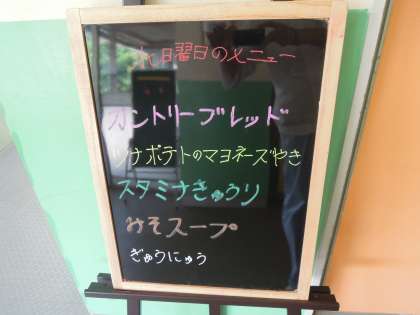 水曜日のメニュー
カントリーブレッド
ツナポテトのマヨネーズやき
スタミナきゅうり
みそスープ
ぎゅうにゅう